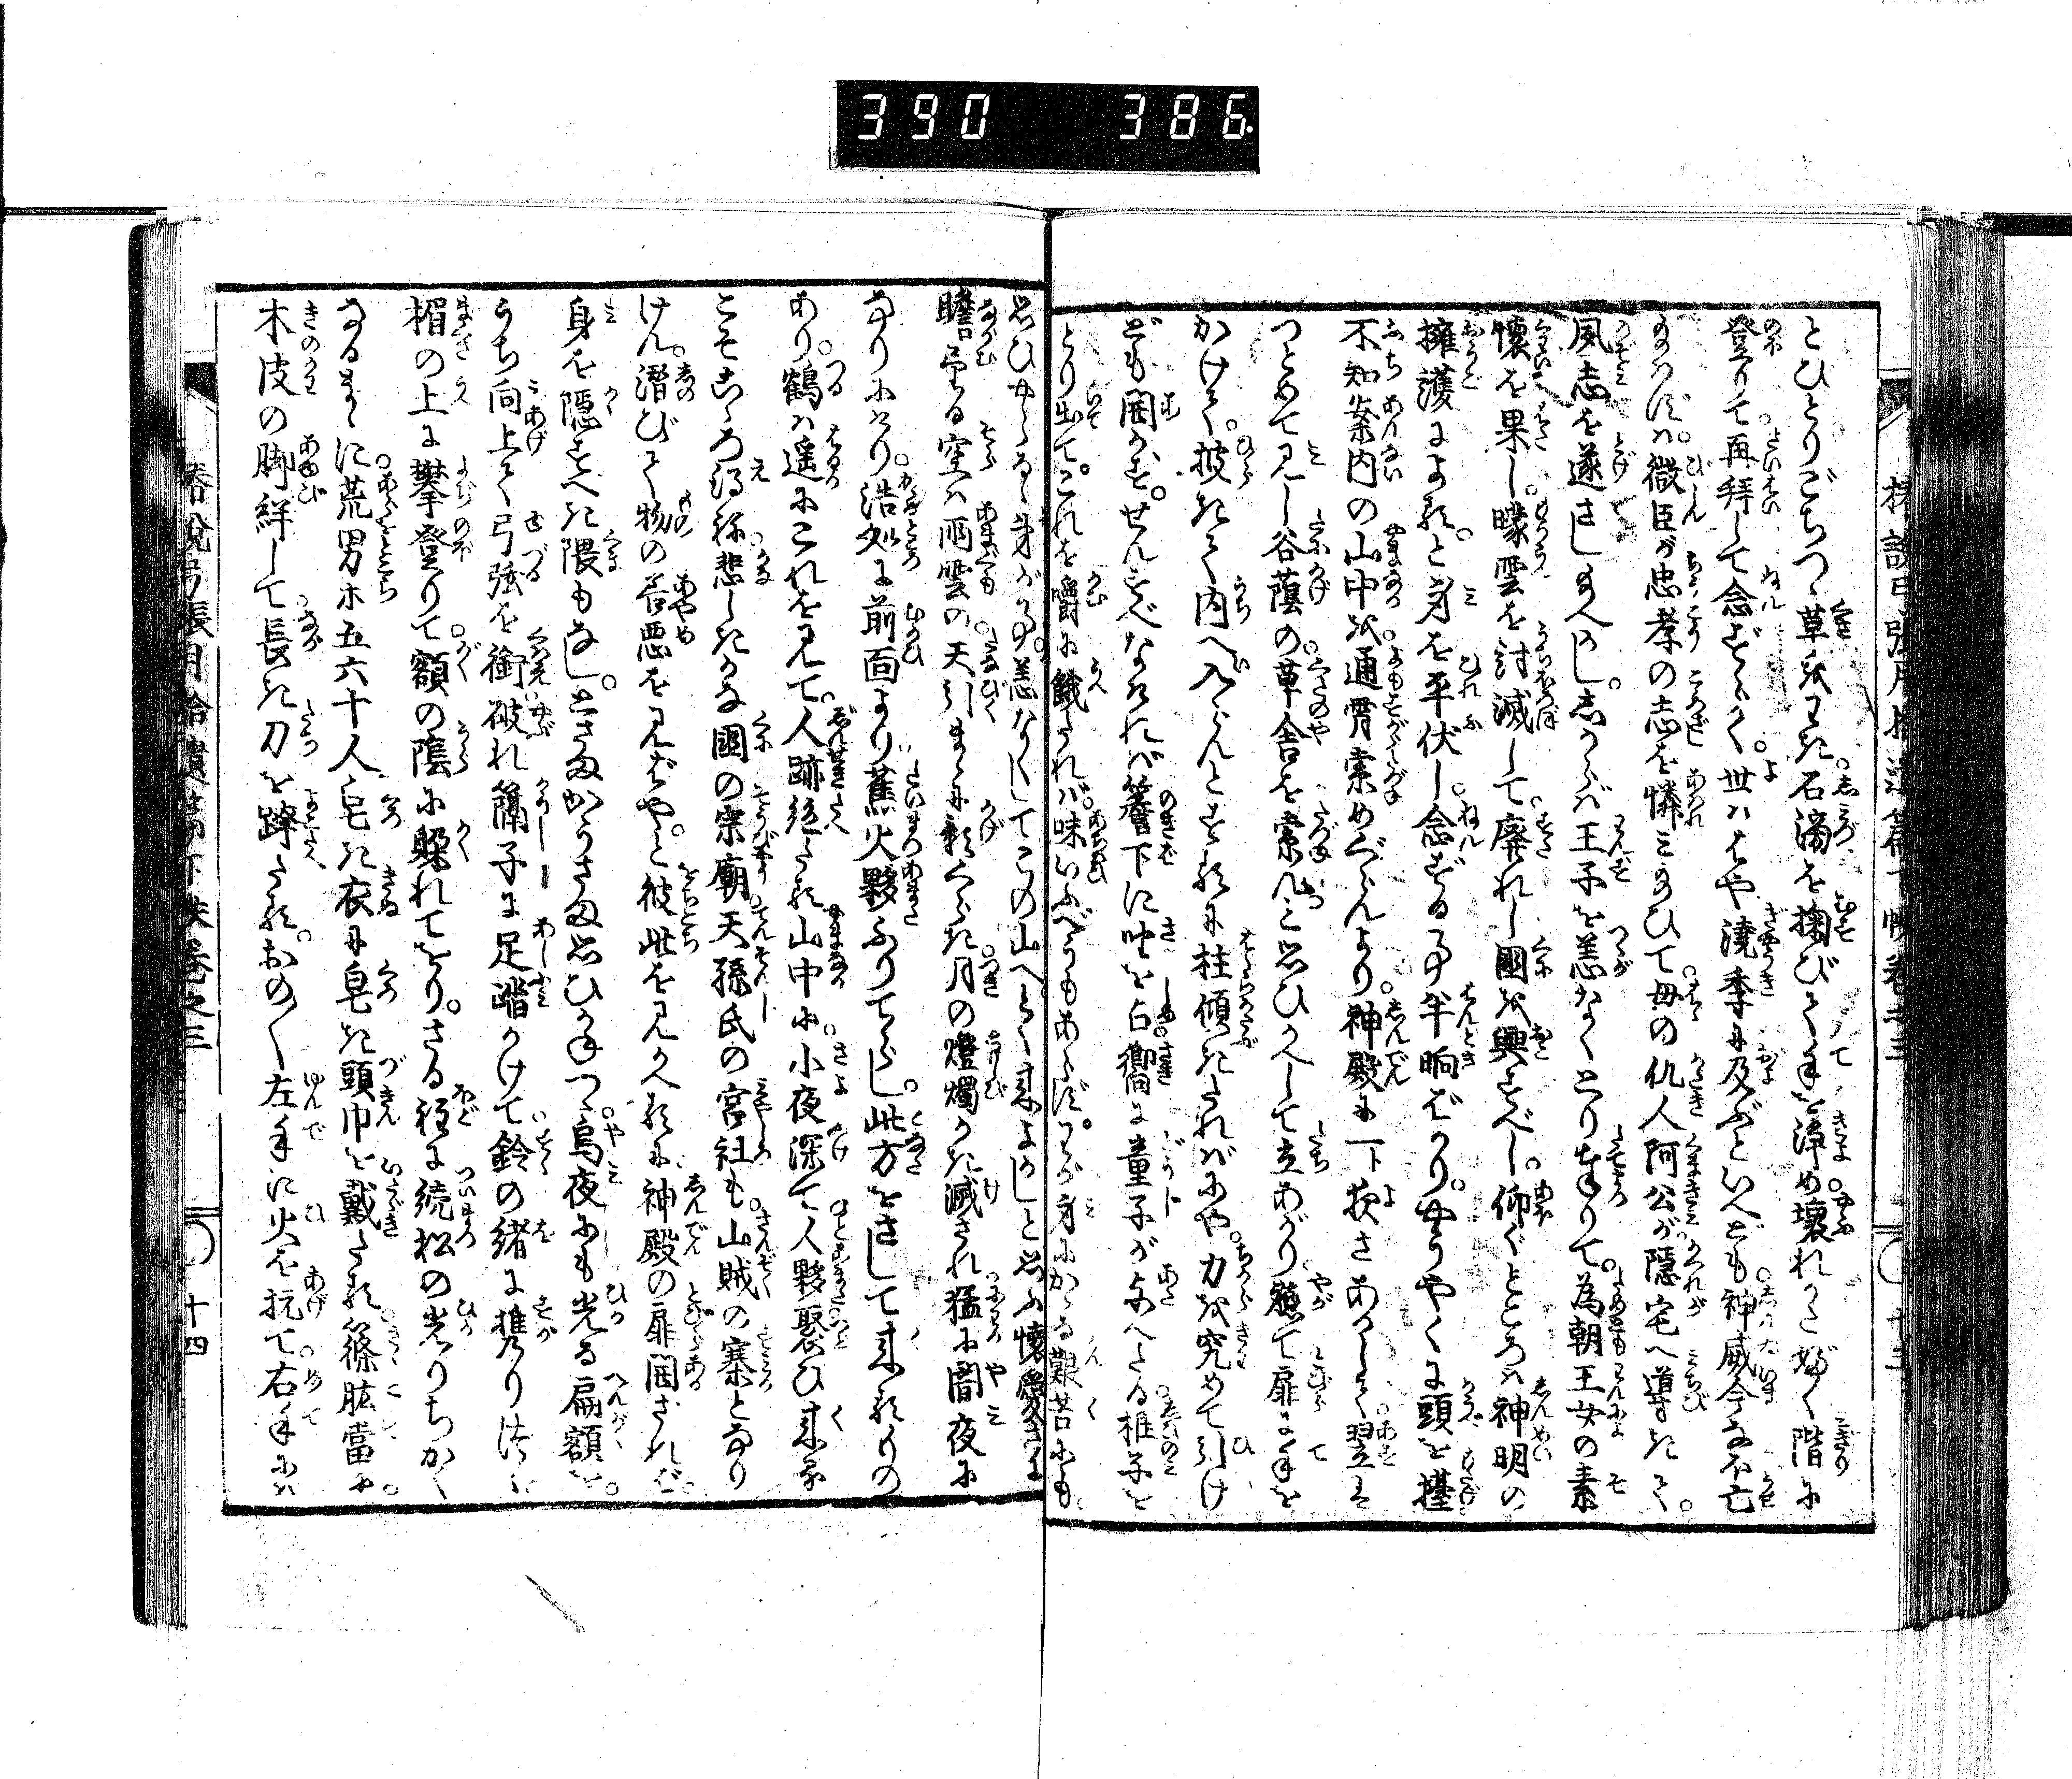 390 386
とひとりごちつゝ草を〓き石滴を掬びて手を浄め壊れたる階に
登りて再拝して念ずらく。世はや澆季に及ぶといへども神威今なほ亡
給はずは。微臣が忠孝の志を憐み給ひて。母の仇人阿公が隠宅へ導きて。
夙志を遂さし給へかし。しからば王子を恙なくとり奉りて。為朝王女の素
懐を果し。曚雲を討滅して。廃れし國を興すべし。仰ぐところは神明の
擁護によると身を平伏し。念ずる事半晌ばかり。やうやくに頭を擡
不知案内の山中を。通宵索めぐらんより。神殿に一ト夜さあかして。翌こそ
つとめて見し谷蔭の。草舎を索んと思ひかへして立あがり。軈て扉に手を
かけて。披きて内へ入らんとするに柱傾きたればにや。力を究めて引け
ども開かず。せんすべなければ簷下に坐を占。嚮に童子が与へたる椎子を
とり出て。これを嚼に餓たれば。味いふべうもあらず。わが身にかゝる艱苦にも
思ひやらるゝ弟が事。恙なくしてこの山へとく来よかしと思ふ懐愛さに
瞻望る空は雨雲の。天引まゝに影くらき。月の燈燭かき滅され猛に闇夜に
なりにけり。浩処に前面より蕉火夥ふりてらし。此方をさして来るもの
あり。鶴は遥にこれを見て。人跡絶たる山中に。小夜深て人夥聚ひ来る
こそこゝろ得ね悲しきかな國の宗廟。天孫氏の宮社も。山賊の寨となり
けん。潜びて物の善悪を見ばやと彼此を見かへるに。神殿の扉開ざれば。
身を隠すべき隈もなし。とさまかうさま思ひかねつゝ。烏夜にも光る扁額を。
うち向上て弓弦を銜。破れ簾子に足踏かけて。鈴の緒に携り浩〻
楣の上に攀登りて。額の蔭に躱れてをり。さる程に続松の光りちかく
なるまゝに。荒男ホ五六十人。皂き衣に皂き頭巾を戴き。篠肱當に。
木皮の脚絆して。長き刀を跨たる。おの〳〵左手に火を抗て右手には
椿説弓張月拾遺篇下帙巻之三 十三
椿説弓張月拾遺篇下帙巻之三 十四